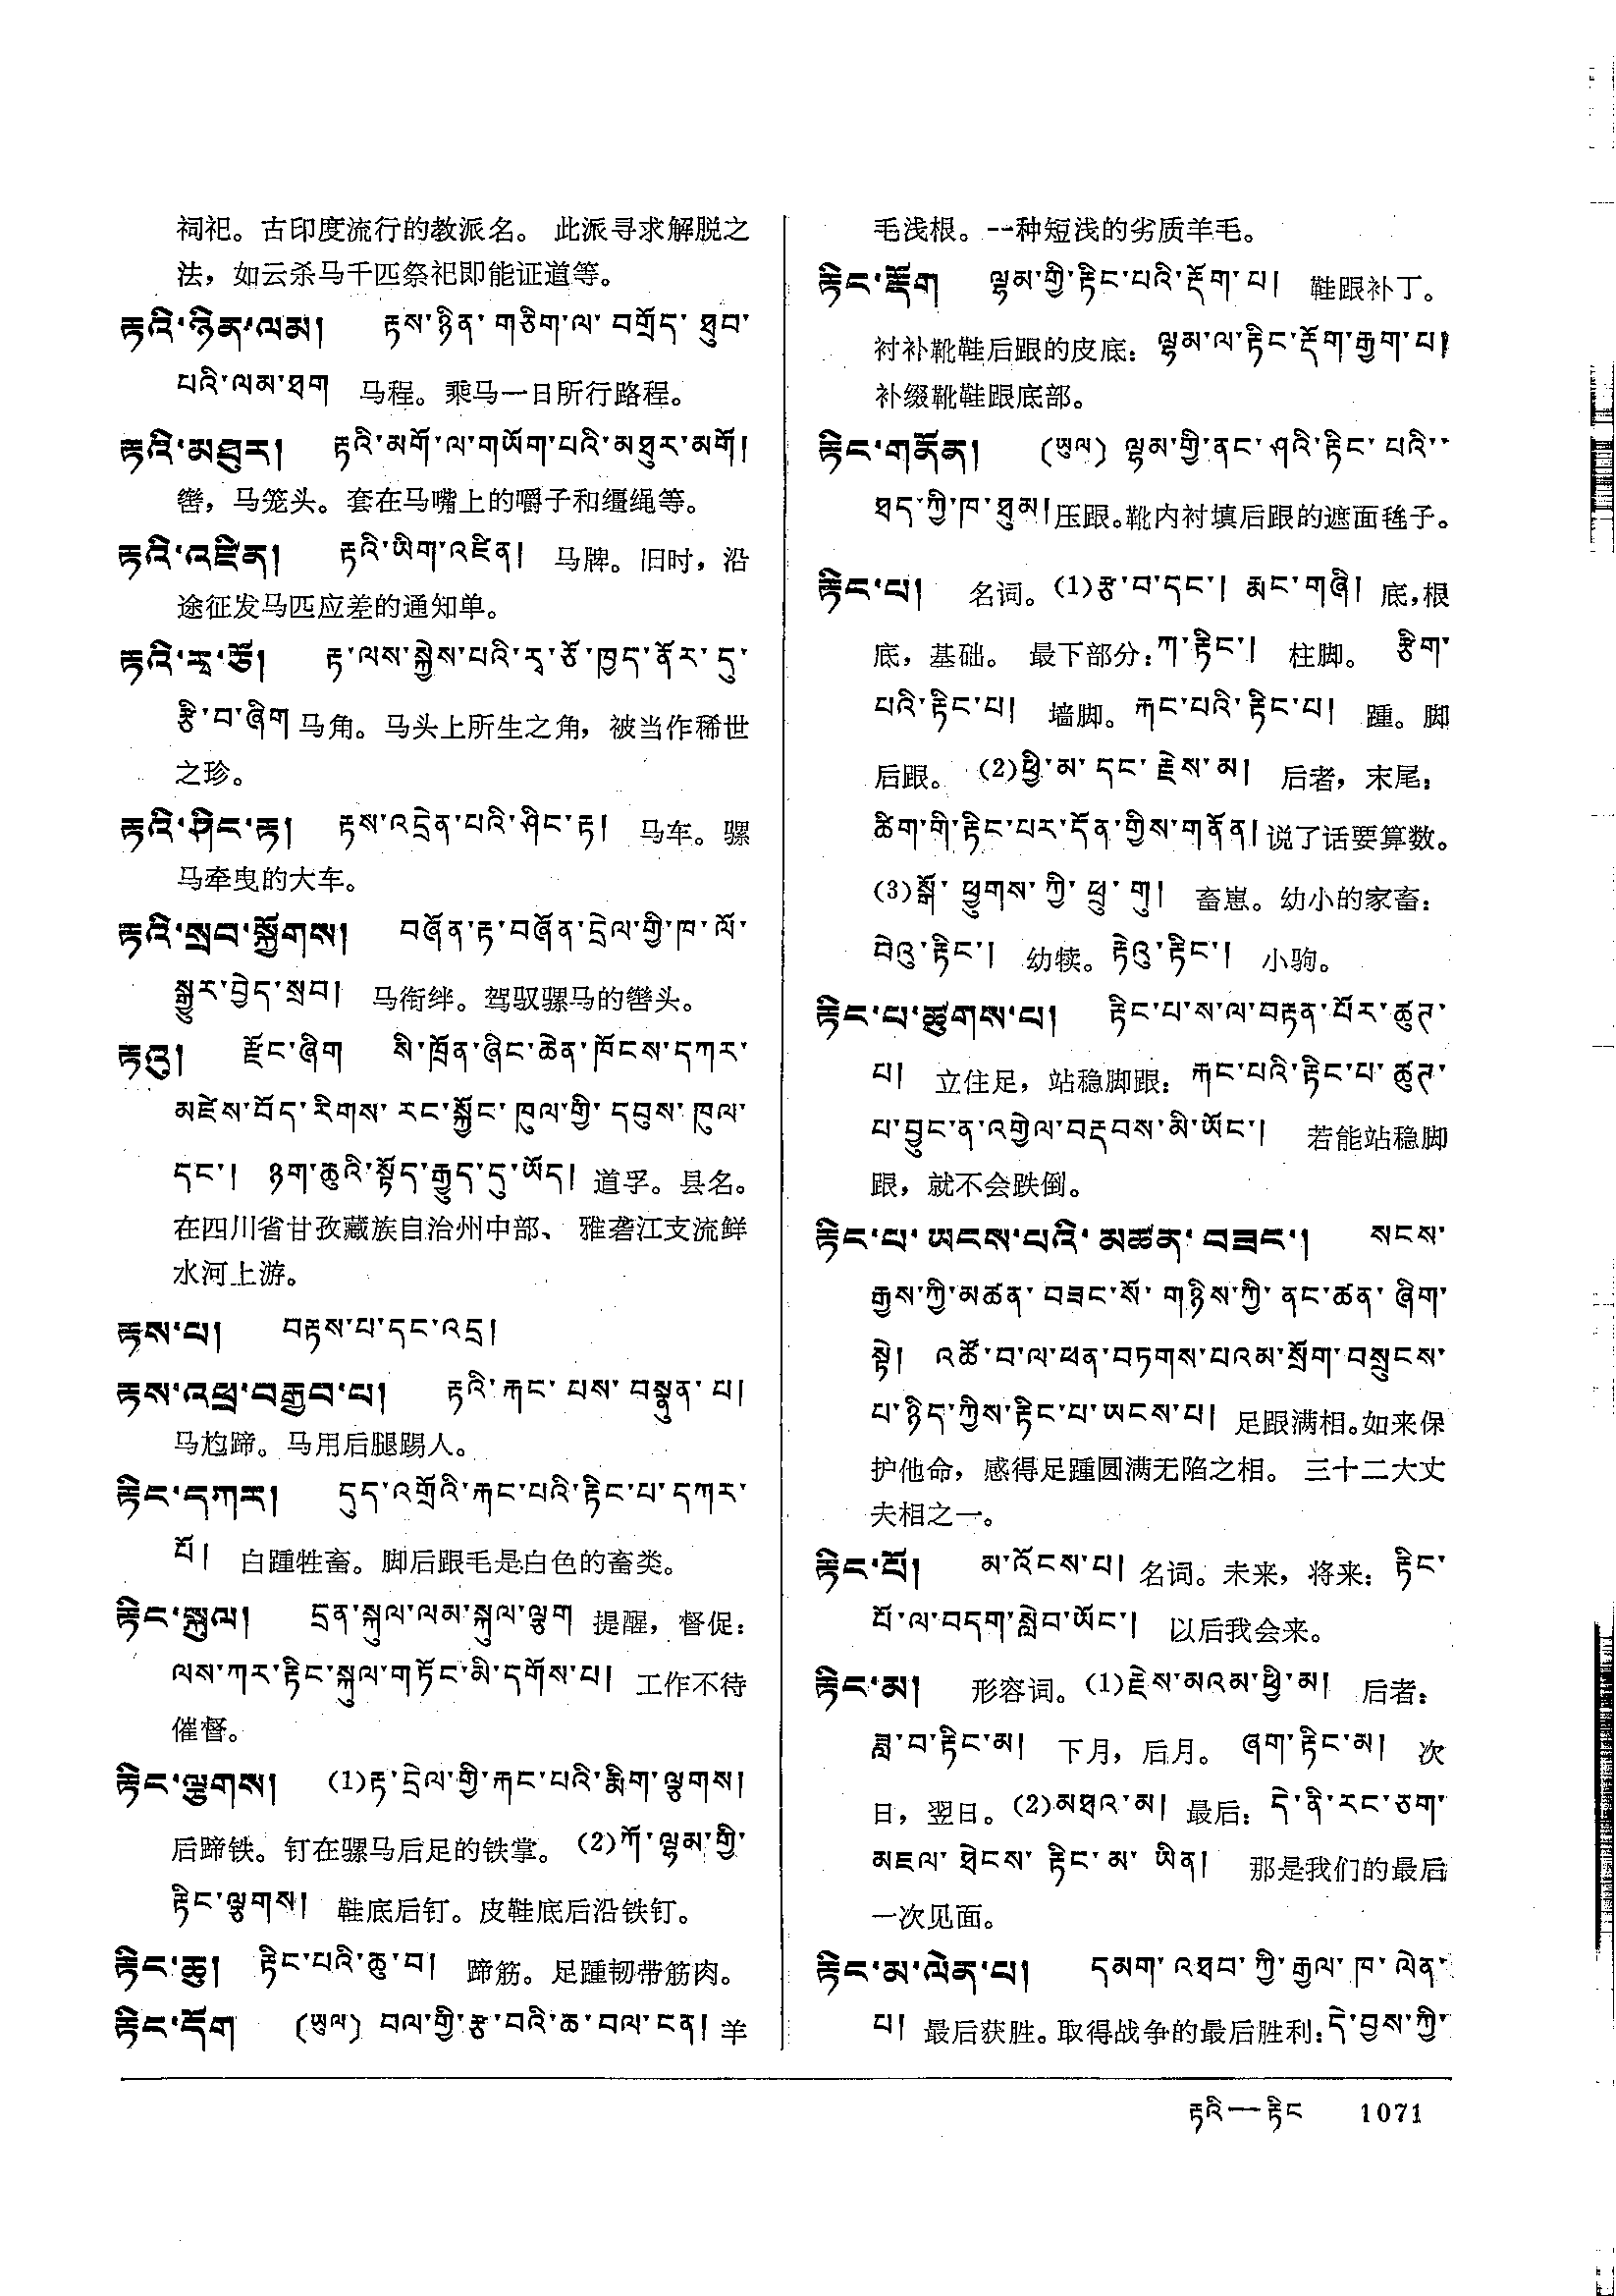 祠祀。古印度流行的教派名。 此派寻求解脱之
法，如云杀马千匹祭祀即能证道等。
རྟའི་ཉིན་ལམ། རྟས་ཉིན་གཅིག་ལ་བགྲོད་ཐུབ་
པའི་ལམ་ཐག 马程。乘马一日所行路程。
རྟའི་མཐུར། རྟའི་མགོ་ལ་གཡོག་པའི་མཐུར་མགོ།
辔，马笼头。套在马嘴上的嚼子和缰绳等。
རྟའི་འཛིན། རྟའི་ཡིག་འཛིན། 马牌。旧时，沿
途征发马匹应差的通知单。
རྟའི་རྭ་ཅོ། རྟ་ལས་སྐྱེས་པའི་རྭ་ཅོ་ཁྱད་ནོར་དུ་
རྩི་བ་ཞིག 马角。马头上所生之角，被当作稀世
之珍。
རྟའི་ཤིང་རྟ། རྟས་འདྲེན་པའི་ཤིང་རྟ། 马车。骡
马牵曳的大车。
རྟའི་སྲབ་སྐྱོགས། བཞོན་རྟ་བཞོན་དྲེལ་གྱི་ཁ་ལོ་
སྒྱུར་བྱེད་སྲབ། 马衔绊。驾驭骡马的辔头。
རྟའུ། རྫོང་ཞིག སི་ཁྲོན་ཞིང་ཆེན་ཁོངས་དཀར་
མཛེས་བོད་རིགས་རང་སྐྱོང་ཁུལ་གྱི་དབུས་ཁུལ་
དང་། ཉག་ཆུའི་སྟོད་རྒྱུད་དུ་ཡོད། 道孚。县名。
在四川省甘孜藏族自治州中部、 雅砻江支流鲜
水河上游。
རྟས་པ། བརྟས་པ་དང་འདྲ།
རྟས་འཕྲ་བརྒྱབ་པ། རྟའི་རྐང་པས་བསྣུན་པ།
马尥蹄。马用后腿踢人。
རྟིང་དཀར། དུད་འགྲོའི་རྐང་པའི་རྟིང་པ་དཀར་
པོ། 白踵牲畜。脚后跟毛是白色的畜类。
རྟིང་སྐུལ། དྲན་སྐུལ་ལམ་སྐུལ་ལྕག 提醒，督促：
ལས་ཀར་རྟིང་སྐུལ་གཏོང་མི་དགོས་པ། 工作不待
催督。
རྟིང་ལྕགས། (1)རྟ་དྲེལ་གྱི་རྐང་པའི་རྨིག་ལྕགས།
后蹄铁。钉在骡马后足的铁掌。(2)ཀོ་ལྷམ་གྱི་
རྟིང་ལྕགས། 鞋底后钉。皮鞋底后沿铁钉。
རྟིང་ཆུ། རྟིང་པའི་ཆུ་བ། 蹄筋。足踵韧带筋肉。
རྟིང་དོག (ཡུལ) བལ་གྱི་རྩ་བའི་ཆ་བལ་ངན། 羊
毛浅根。一种短浅的劣质羊毛。
རྟིང་རྡོག ལྷམ་གྱི་རྟིང་པའི་རྡོག་པ། 鞋跟补丁。
衬补靴鞋后跟的皮底：ལྷམ་ལ་རྟིང་རྡོག་རྒྱག་པ།
补缀靴鞋跟底部。
རྟིང་གནོན། (ཡུལ) ལྷམ་གྱི་ནང་ཤའི་རྟིང་པའི་
ཐད་ཀྱི་ཁ་ཐུམ། 压跟。靴内衬填后跟的遮面毪子。
རྟིང་པ། 名词。(1)རྩ་བ་དང་། རྨང་གཞི། 底，根
底，基础。 最下部分：ཀ་རྟིང་། 柱脚。 རྩིག་
པའི་རྟིང་པ། 墙脚。 རྐང་པའི་རྟིང་པ། 踵。脚
后跟。 (2)ཕྱི་མ་དང་རྗེས་མ། 后者，末尾：
ཚིག་གི་རྟིང་པར་དོན་གྱིས་གནོན། 说了话要算数。
(3)སྒོ་ཕྱུགས་ཀྱི་ཕྲུ་གུ། 畜崽。幼小的家畜：
བེའུ་རྟིང་། 幼犊。རྟེའུ་རྟིང་། 小驹。
རྟིང་པ་ཚུགས་པ། རྟིང་པ་ས་ལ་བརྟན་པོར་ཚུད་
པ། 立住足，站稳脚跟：རྐང་པའི་རྟིང་པ་ཚུད་
པ་བྱུང་ན་འགྱེལ་བརྡབས་མི་ཡོང་། 若能站稳脚
跟，就不会跌倒。
རྟིང་པ་ཡངས་པའི་མཚན་བཟང་། སངས་
རྒྱས་ཀྱི་མཚན་བཟང་སོ་གཉིས་ཀྱི་ནང་ཚན་ཞིག་
སྟེ། འཚོ་བ་ལ་ཕན་བཏགས་པའམ་སྲོག་བསྲུངས་
པ་ཉིད་ཀྱིས་རྟིང་པ་ཡངས་པ། 足跟满相。如来保
护他命，感得足踵圆满无陷之相。 三十二大丈
夫相之一。
རྟིང་པོ། མ་འོངས་པ། 名词。未来，将来：རྟིང་
པོ་ལ་བདག་སླེབ་ཡོང་། 以后我会来。
རྟིང་མ། 形容词。(1)རྗེས་མའམ་ཕྱི་མ། 后者：
ཟླ་བ་རྟིང་མ། 下月，后月。 ཞག་རྟིང་མ། 次
日，翌日。(2)མཐའ་མ། 最后：དེ་ནི་རང་ཅག་
མཇལ་ཐེངས་རྟིང་མ་ཡིན། 那是我们的最后
一次见面。
རྟིང་མ་ལེན་པ། དམག་འཐབ་ཀྱི་རྒྱལ་ཁ་ལེན་
པ། 最后获胜。取得战争的最后胜利：དེ་བྱས་ཀྱི་
རྟའི—རྟིང 1071